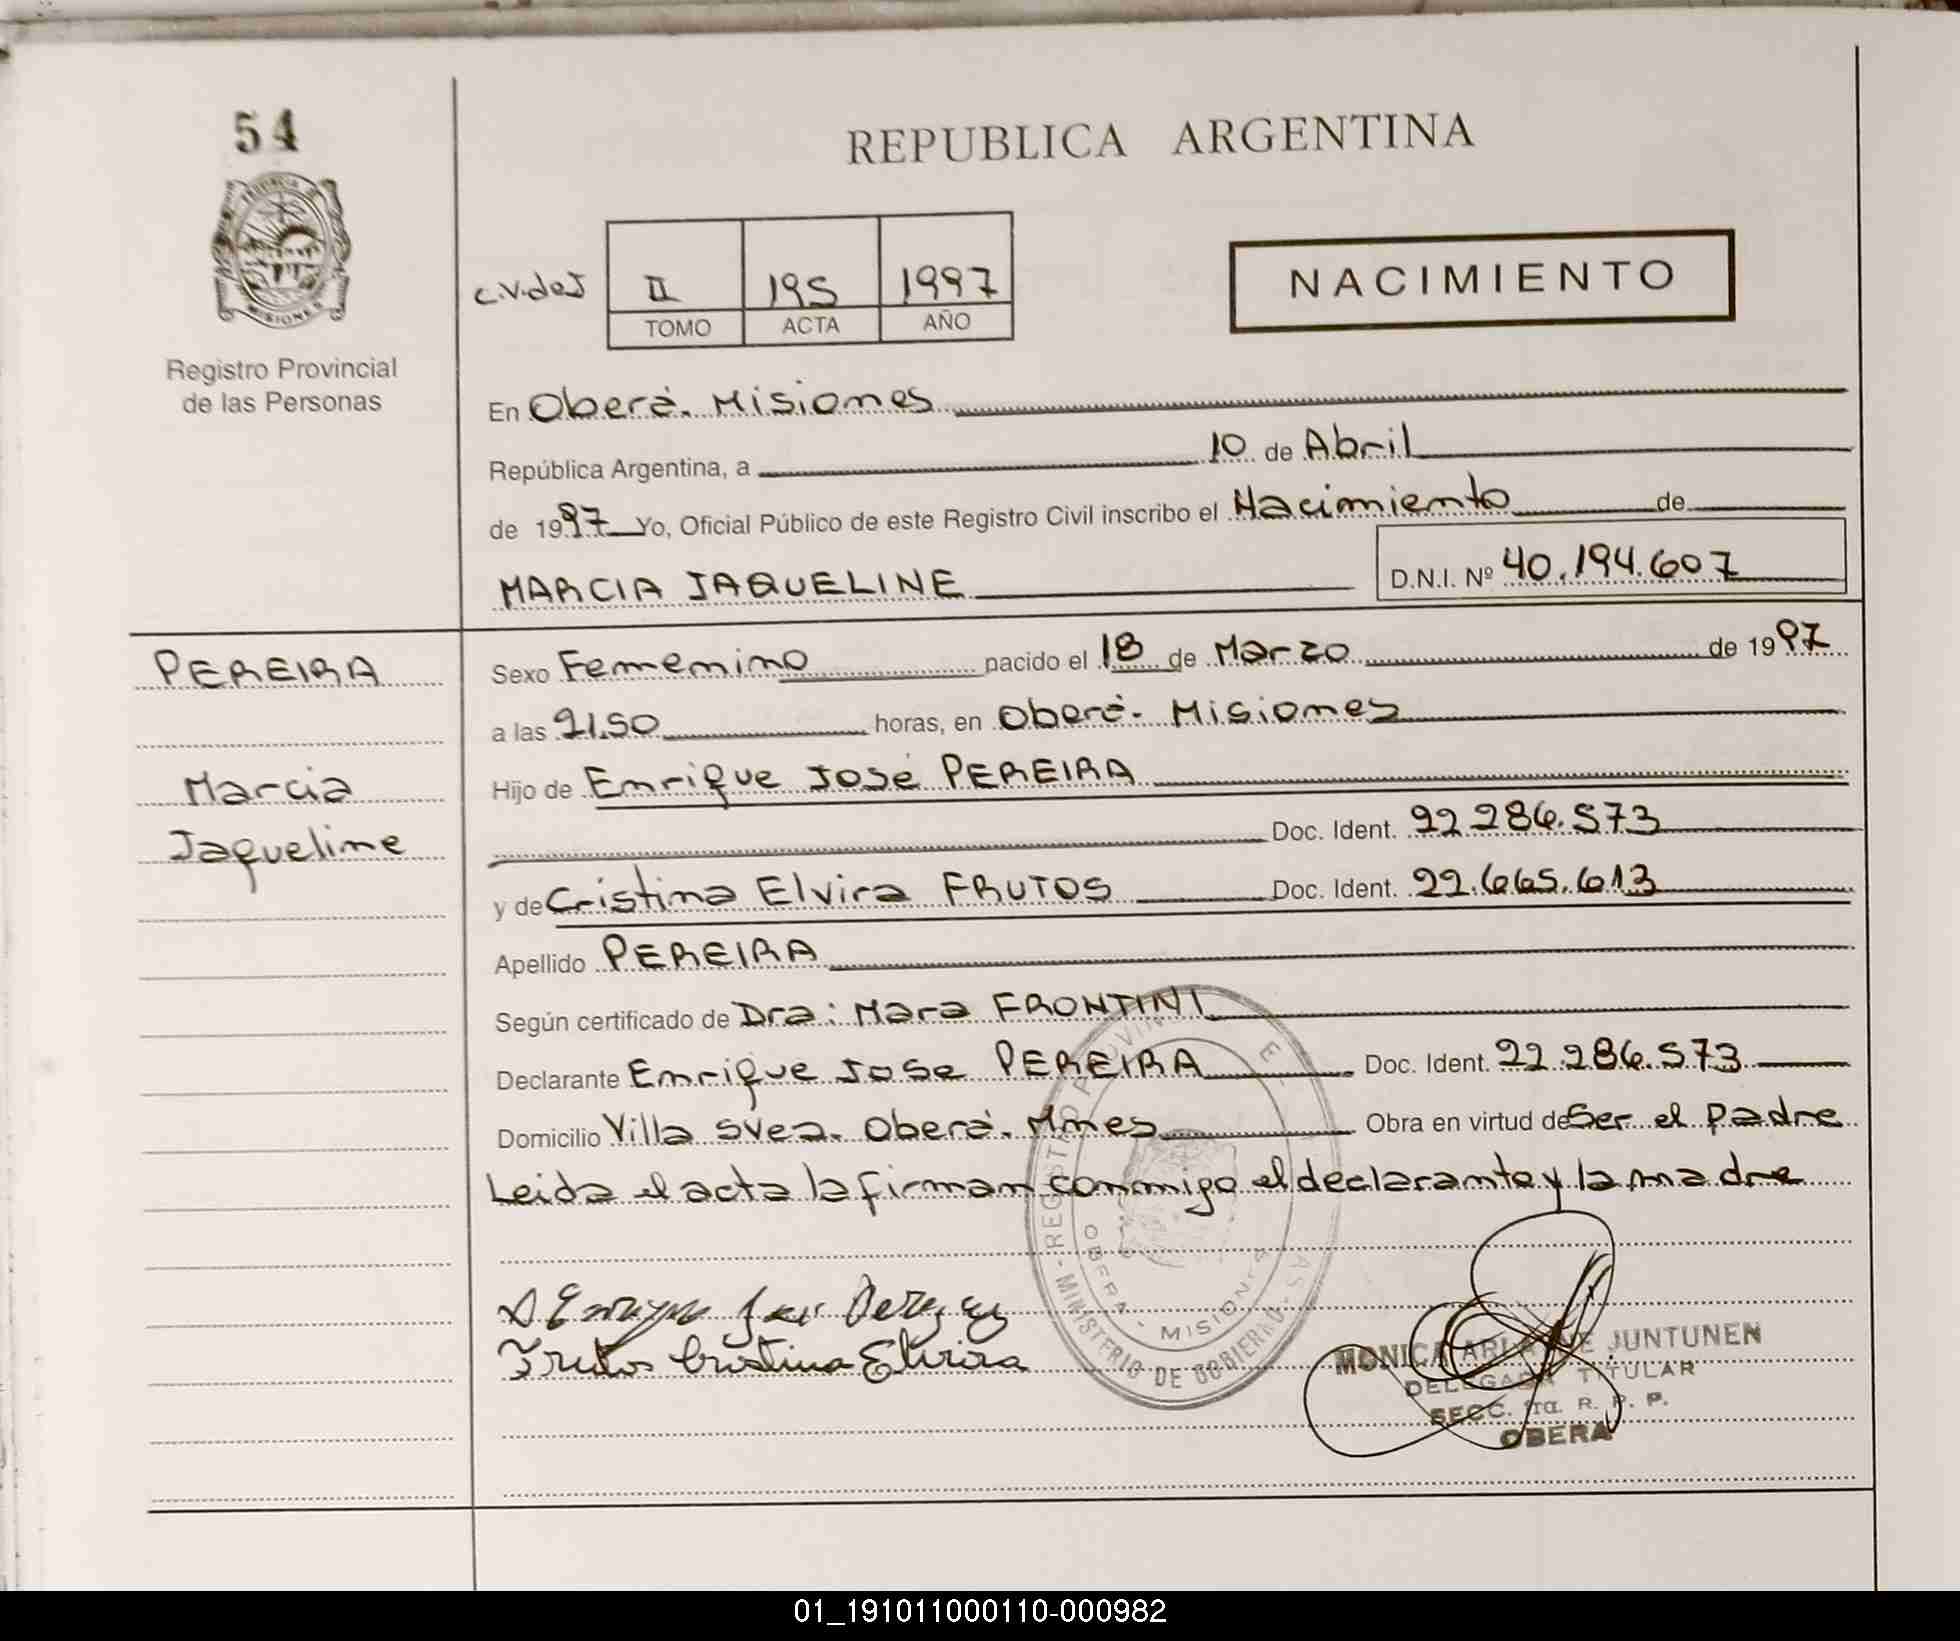 54
REPUBLICA ARGENTINA
PROVINCIA DE MISIONES
C.V. de J
II 195 1997
TOMO ACTA AÑO
NACIMIENTO
Registro Provincial
de las Personas
En Oberá. Misiones
República Argentina, a 10 de Abril
de 1997 Yo, Oficial Público de este Registro Civil inscribo el Nacimiento de
MARCIA JAQUELINE D.N.I. Nº 40.194.607
PEREIRA
Marcia
Jaqueline
Sexo Femenino nacido el 18 de Marzo de 1997
a las 21,50 horas, en Oberá. Misiones
Hijo de Enrique José PEREIRA
Doc. Ident. 22.286.573
y de Cristina Elvira FRUTOS Doc. Ident. 22.665.613
Apellido PEREIRA
Según certificado de Dra: Mara FRONTINI
Declarante Enrique Jose PEREIRA Doc. Ident. 22.286.573
Domicilio Villa Svea. Oberá. Mnes Obra en virtud de Ser el padre
Leida el acta la firman conmigo el declarante y la madre
Frutos Cristina Elvira
MINISTERIO DE GOBIERNO
OBERA - MISIONES
MONICA JUNTUNEN
DELEGADA TITULAR
SECC. 1ra. R. P. P.
OBERA
01_191011000110-000982